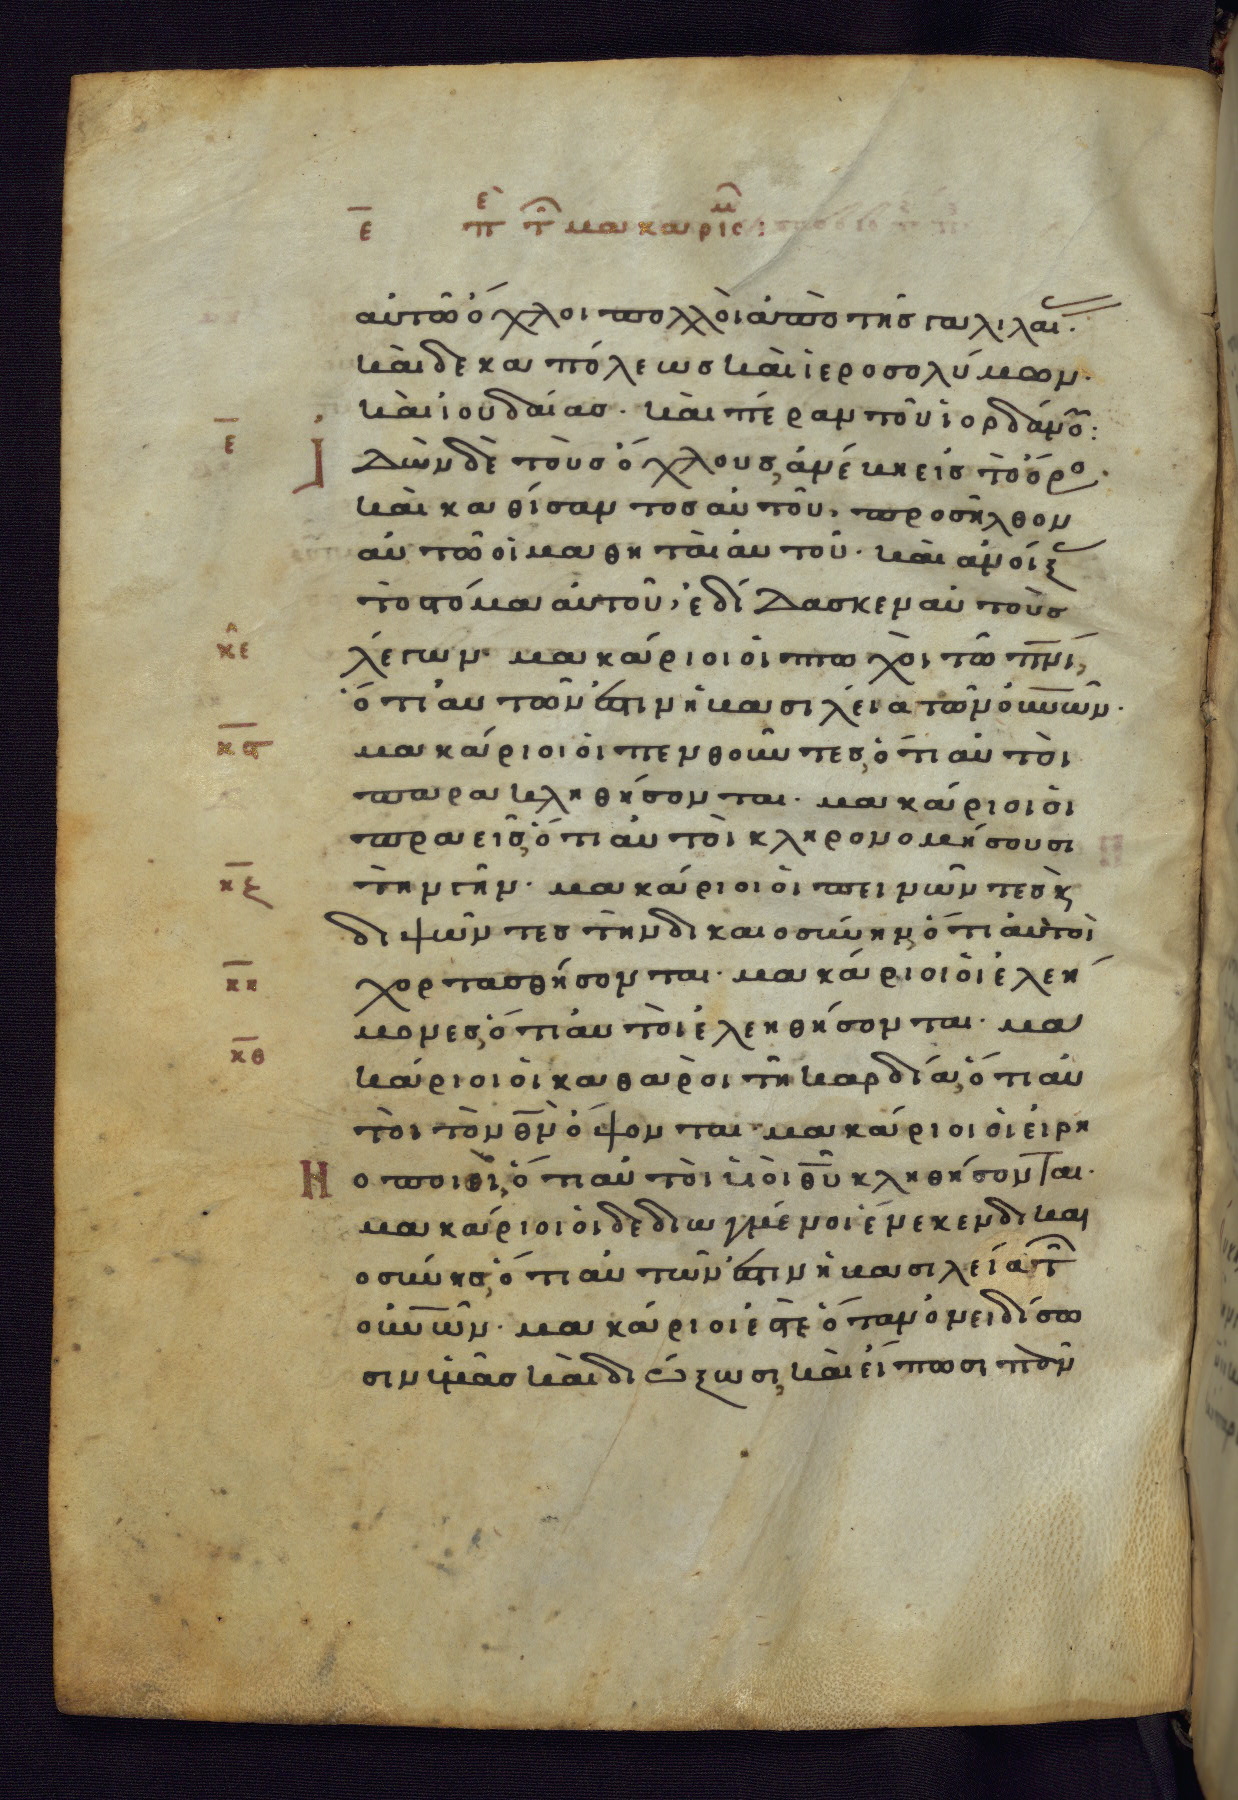 ε περὶ τῶν μακαρισμῶν:
αὐτῶ ὄχλοι πολλοὶ ἀπὸ τῆς γαλιλαί.
καὶ δεκαπόλεως καὶ ἱεροσολύμων.
καὶ ἰουδαίας. καὶ πέραν τοῦ ἰορδάνου:
ε Ἰδὼν δὲ τοὺς ὄχλους, ἀνέβη εἰς τὸ ὄρο.
καὶ καθίσαντος αὐτοῦ, προσῆλθον
αὐτῶ οἱ μαθηταὶ αὐτοῦ. καὶ ἀνοίξ
τὸ στόμα αὐτοῦ, ἐδίδασκεν αὐτοὺς
κε λέγων. μακάριοι οἱ πτωχοὶ τῶ πνι,
ὅτι αὐτῶν ἐστιν ἡ βασιλεία τῶν οὐνῶν.
κϛ μακάριοι οἱ πενθοῦντες, ὅτι αὐτοὶ
παρακληθήσονται. μακάριοι οἱ
πραεῖς, ὅτι αὐτοὶ κληρονομήσουσι
κζ τὴν γῆν. μακάριοι οἱ πεινῶντες κ
διψῶντες τὴν δικαιοσύνην, ὅτι αὐτοὶ
κη χορτασθήσονται. μακάριοι οἱ ἐλεή
μονες, ὅτι αὐτοὶ ἐλεηθήσονται. μα
κθ κάριοι οἱ καθαροὶ τῆ καρδία, ὅτι αὐ
τοὶ τὸν θν ὄψονται. μακάριοι οἱ εἰρη
Η οποιοὶ, ὅτι αὐτοὶ υἱοὶ θυ κληθήσονται.
μακάριοι οἱ δεδιωγμένοι ἕνεκεν δικαι
οσύνης, ὅτι αὐτῶν ἐστιν ἡ βασιλεία τῶν
οὐνῶν. μακάριοι ἐστὲ ὅταν ὀνειδίσω
σιν ὑμᾶς καὶ διώξωσι, καὶ εἴπωσι πὸν